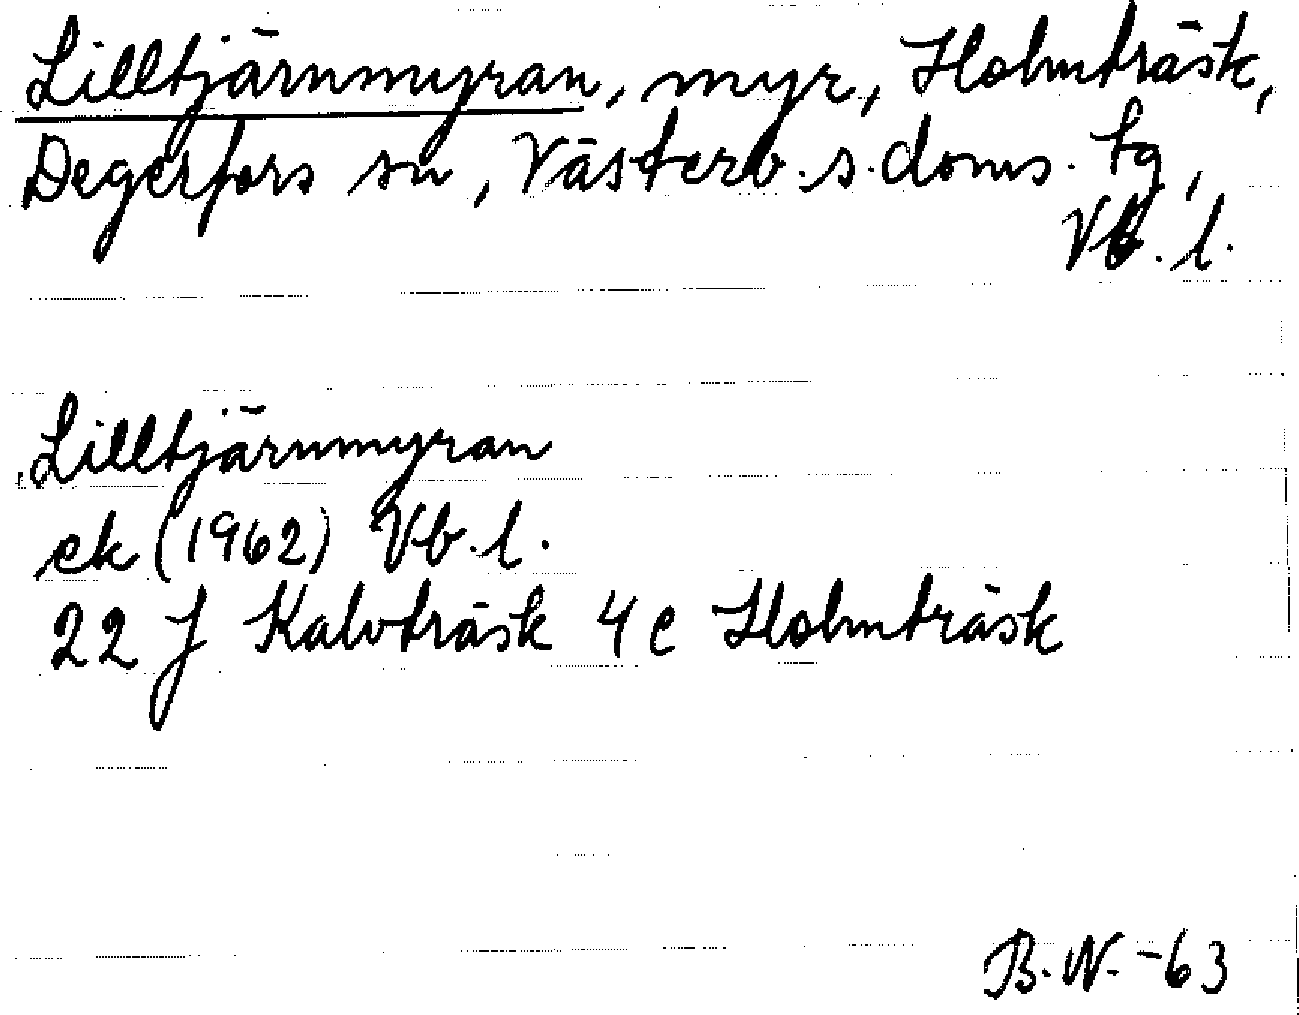 Lilltjärnmyran, myr, Holmträsk,
Degerfors sn, Västerb. s. doms. tg,
Vb. l.
Lilltjärnmyran
ek (1962) Vb. l.
22 J Kalvträsk 4 c Holmträsk
B. N. -63